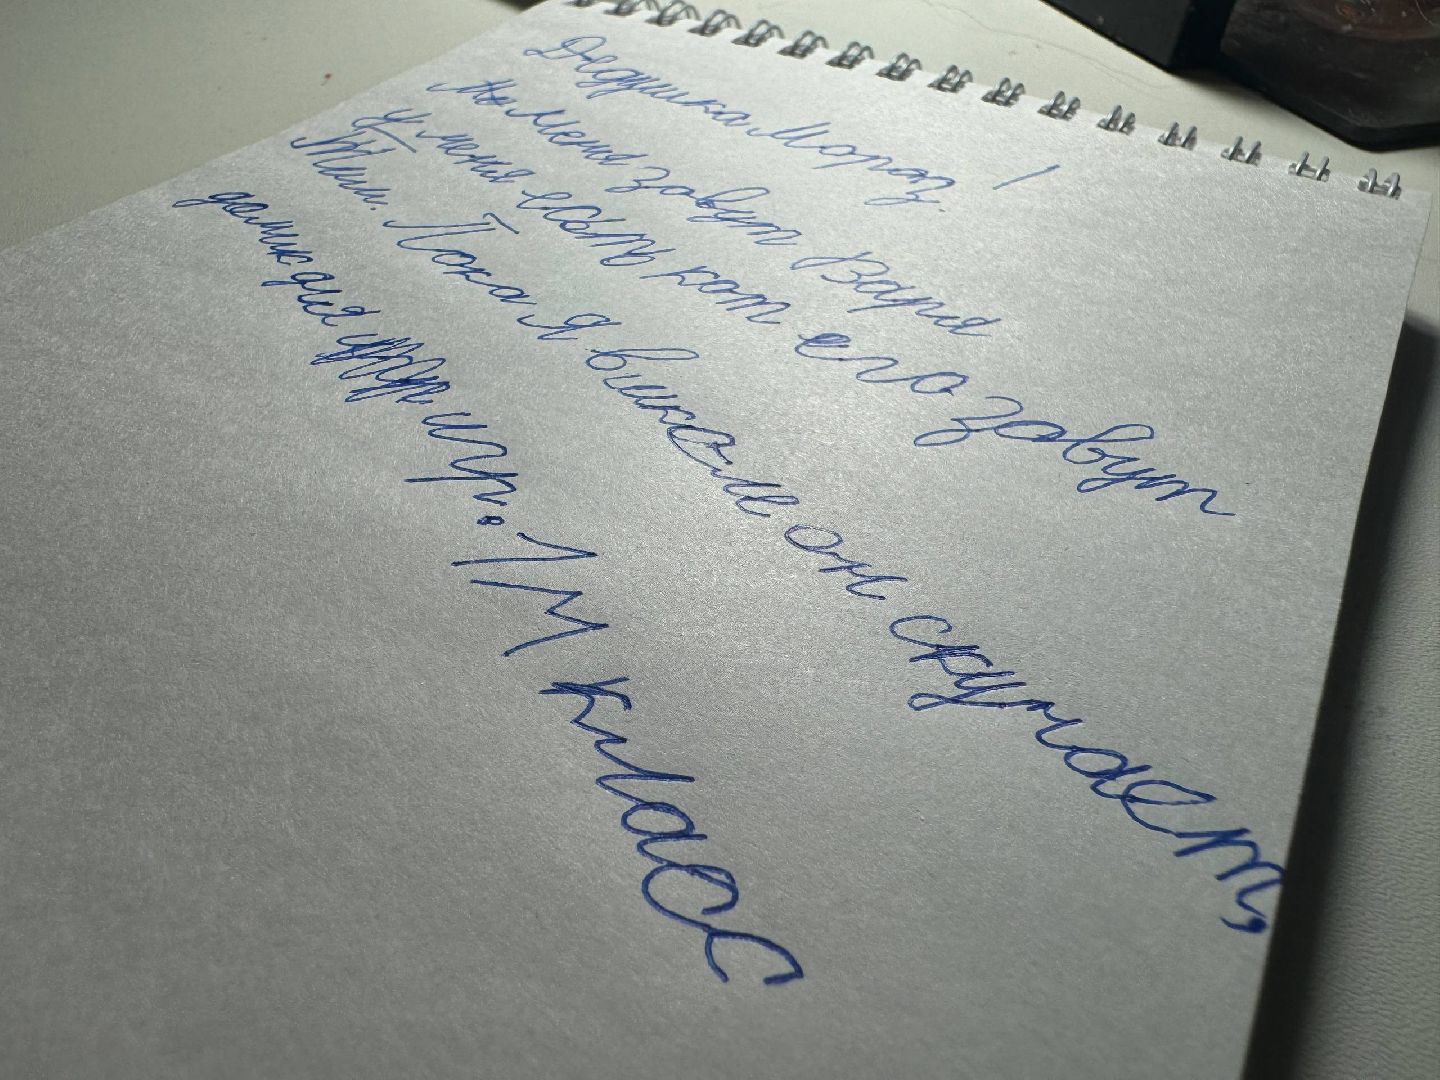 Дедушка Мороз!
меня зовут Варя
у меня есть кот его зовут
Тиш. Пока я в школе он скучает,
домик для игр. 1М класс